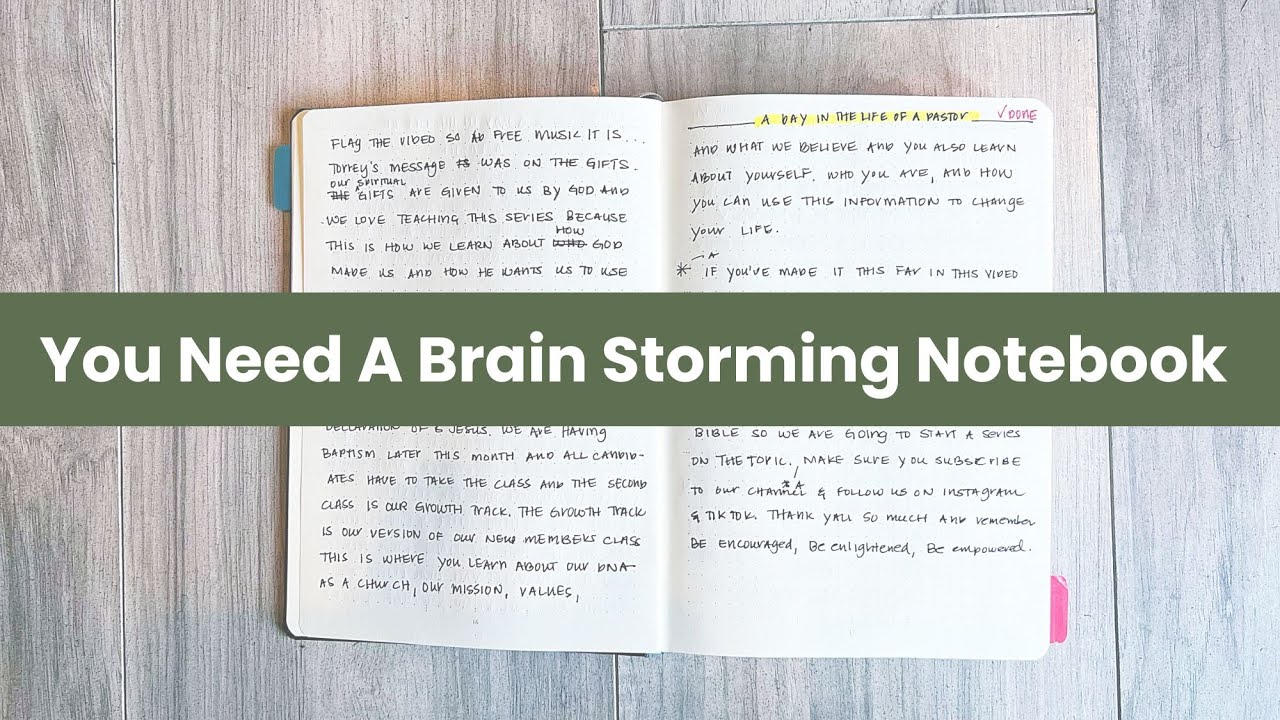 FLAG THE VIDEO SO AD FREE MUSIC IT IS...
TORREY'S MESSAGE IS WAS ON THE GIFTS.
OUR SPIRITUAL
THE GIFTS ARE GIVEN TO US BY GOD AND
WE LOVE TEACHING THIS SERIES BECAUSE
HOW
THIS IS HOW WE LEARN ABOUT WHO GOD
MADE US AND HOW HE WANTS US TO USE
A DAY IN THE LIFE OF A PASTOR ✓DONE
AND WHAT WE BELIEVE AND YOU ALSO LEARN
ABOUT YOURSELF. WHO YOU ARE, AND HOW
YOU CAN USE THIS INFORMATION TO CHANGE
YOUR LIFE.
* IF YOU'VE MADE IT THIS FAR IN THIS VIDEO
You Need A Brain Storming Notebook
DECLARATION OF JESUS. WE ARE HAVING
BAPTISM LATER THIS MONTH AND ALL CANDID-
ATES HAVE TO TAKE THE CLASS AND THE SECOND
CLASS IS OUR GROWTH TRACK. THE GROWTH TRACK
IS OUR VERSION OF OUR NEW MEMBERS CLASS
THIS IS WHERE YOU LEARN ABOUT OUR DNA
AS A CHURCH, OUR MISSION, VALUES,
16
BIBLE SO WE ARE GOING TO START A SERIES
ON THE TOPIC. MAKE SURE YOU SUBSCRIBE
TO OUR CHANNEL & FOLLOW US ON INSTAGRAM
& TIKTOK. THANK YALL SO MUCH AND remember
BE encouraged, Be enlightened, Be empowered.